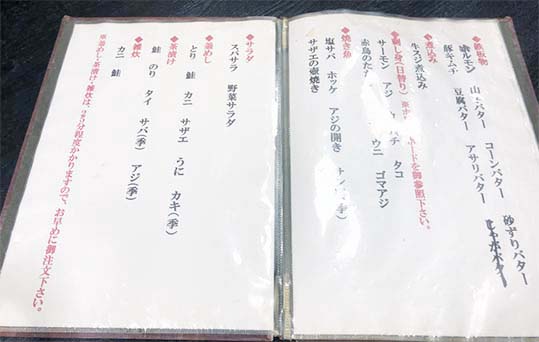 ◆鉄板物
ホルモン 山・バター コーンバター 砂ずりバター
豚キムチ 豆腐バター アサリバター
◆煮込み
牛スジ煮込み
◆刺し身(日替り) ボードを御参照下さい。
サーモン アジ タコ
赤鳥のたたき ウニ ゴマアジ
◆焼き魚
塩サバ ホッケ アジの開き サンマ(季)
サザエの壺焼き
◆サラダ
スパサラ 野菜サラダ
◆釜めし
とり 鮭 カニ サザエ うに カキ(季)
◆茶漬け
鮭 のり タイ サバ(季) アジ(季)
◆雑炊
カニ 鮭
※釜めし・茶漬け・雑炊は、25分程度かかりますので、お早めに御注文下さい。